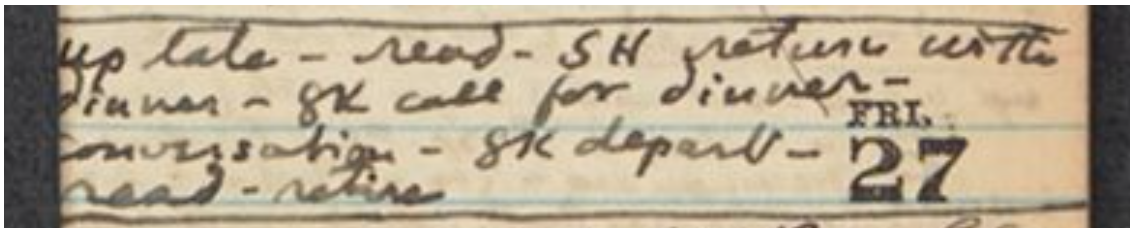 up late - read - SH return with
dinner - gK call for dinner -
FRI.
conversation - gK depart - 27
read - retire